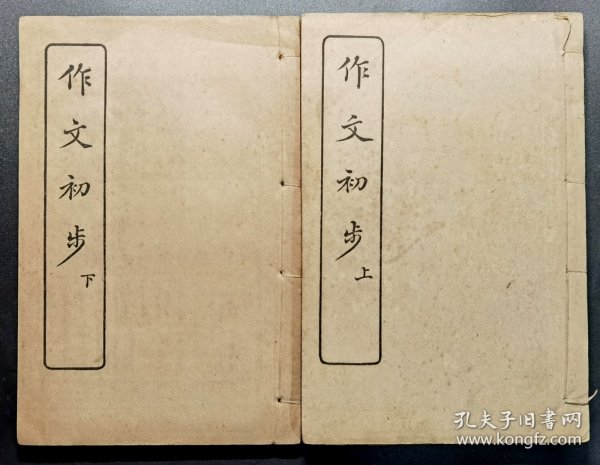 作文初步
上
作文初步
下
孔夫子旧书网
www.kongfz.com